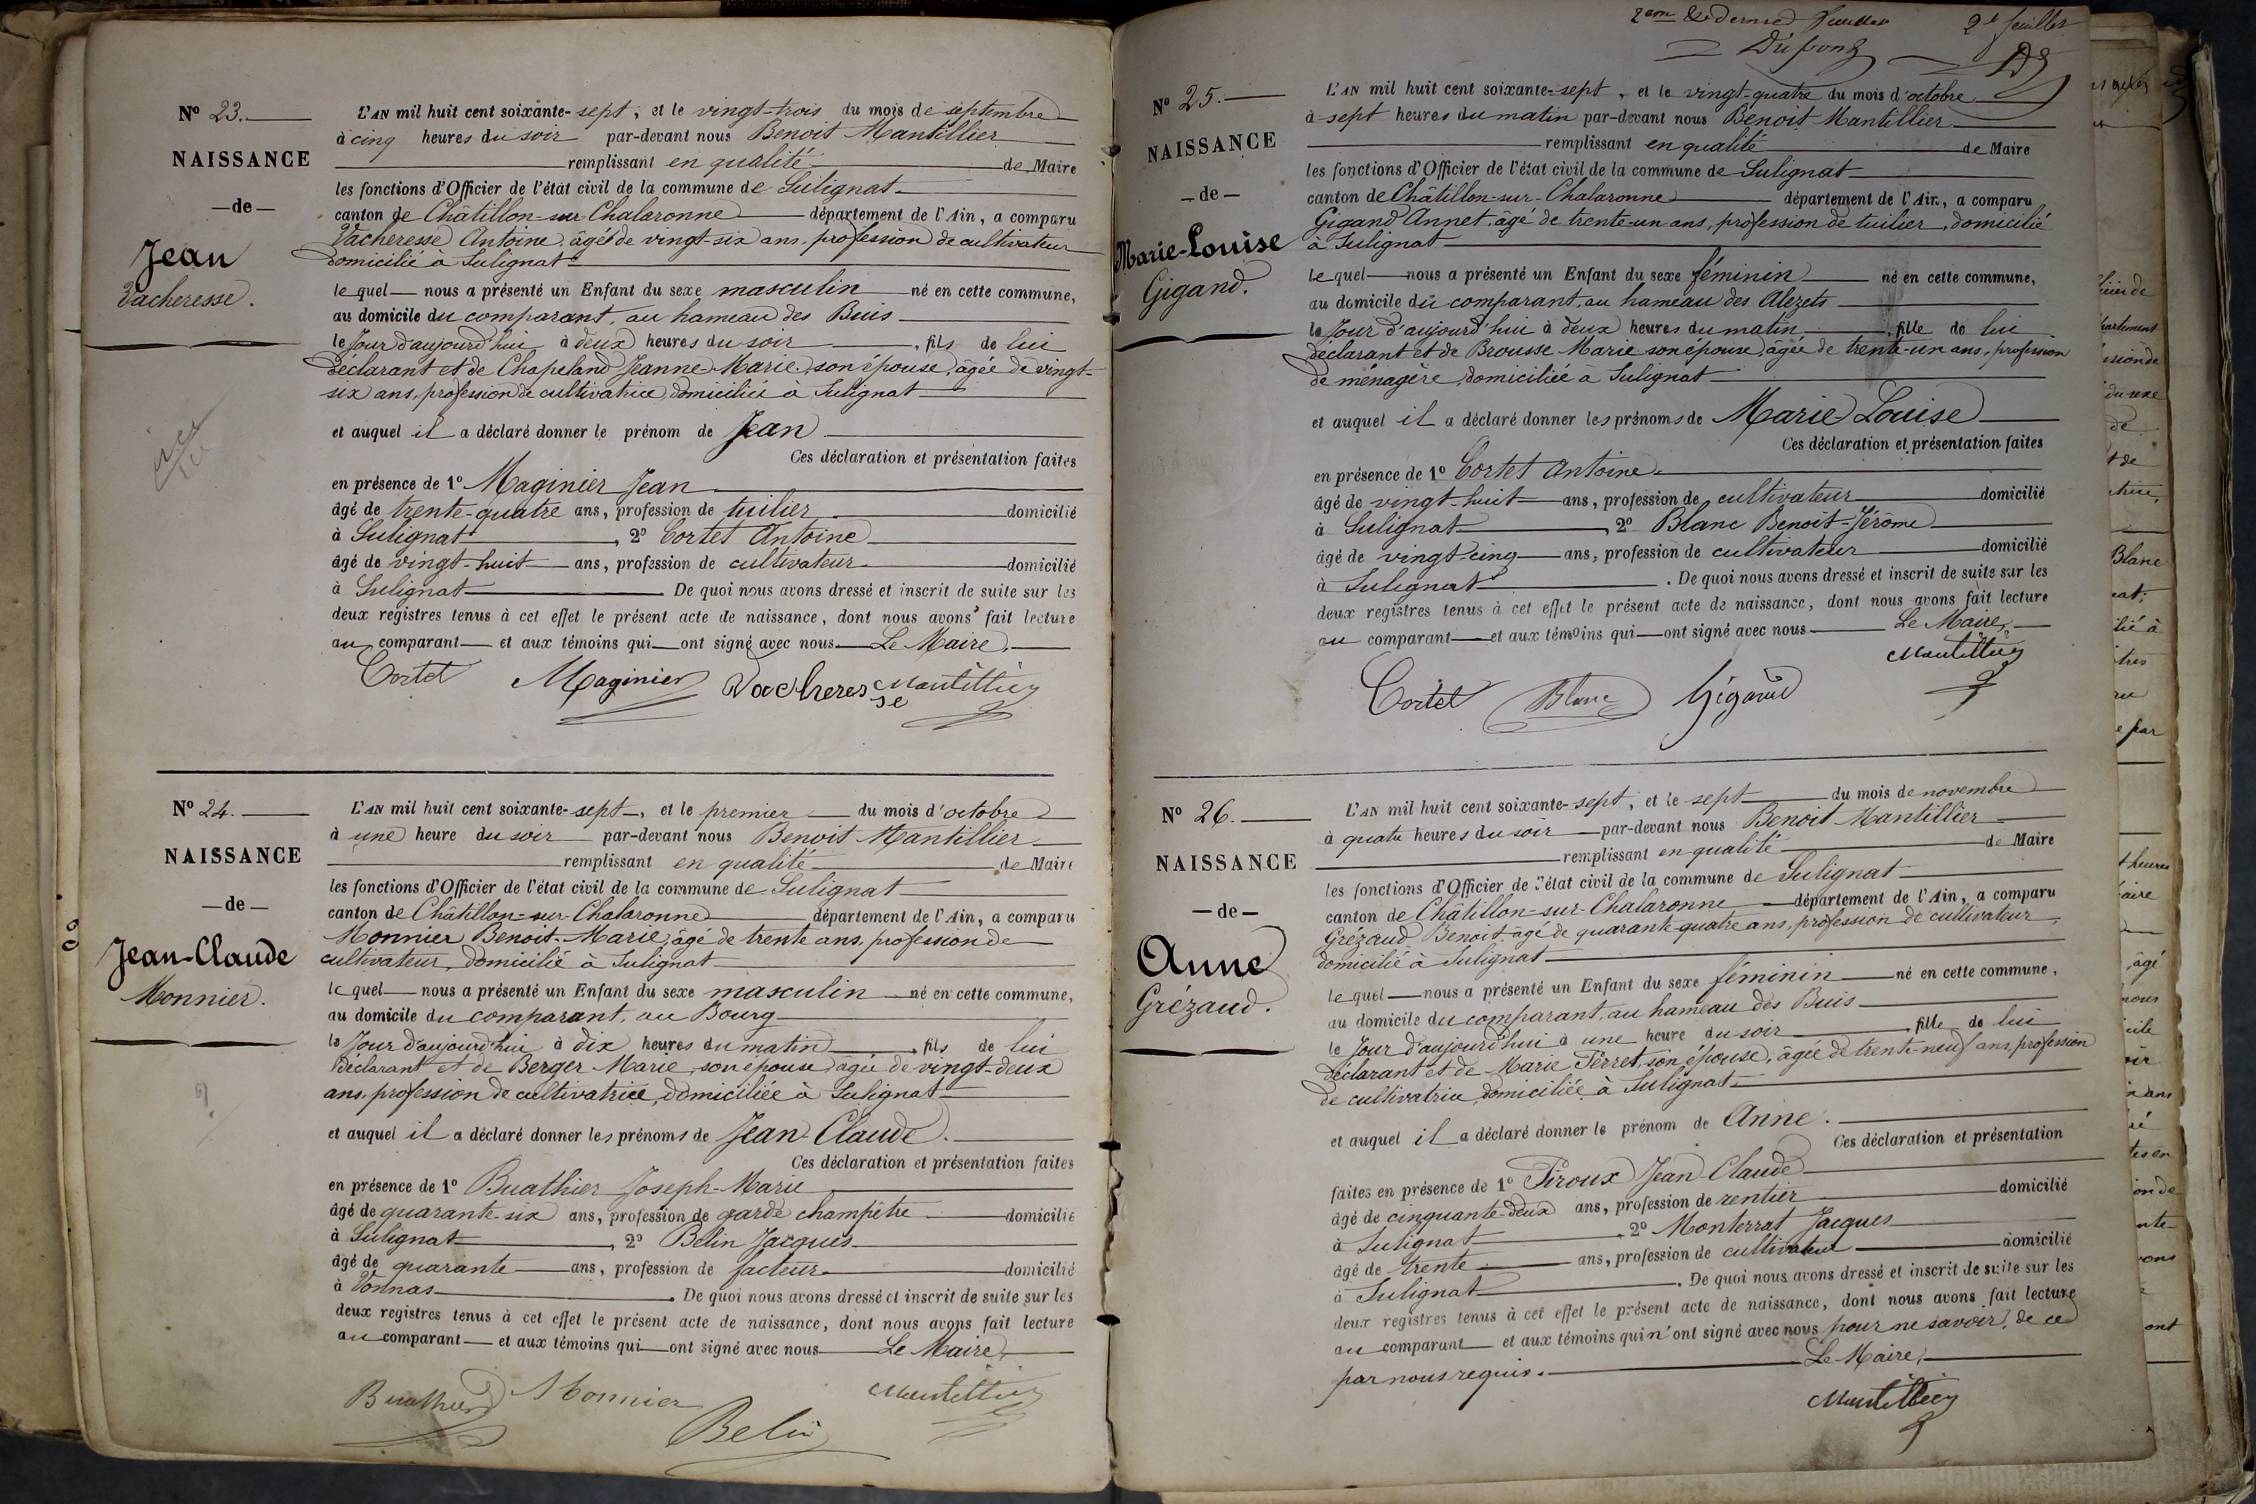 N° 23.
NAISSANCE
— de —
Jean
Vacheresse.
L'AN mil huit cent soixante-sept, et le vingt-trois du mois de septembre
à cinq heures du soir par-devant nous Benoit Mantillier
remplissant en qualité de Maire
les fonctions d'Officier de l'état civil de la commune de Sulignat
canton de Châtillon-sur-Chalaronne département de l'Ain, a comparu
Vacheresse Antoine, âgé de vingt-six ans, profession de cultivateur
domicilié à Sulignat
lequel nous a présenté un Enfant du sexe masculin né en cette commune,
au domicile du comparant, au hameau des Buis
le Jour d'aujourd'hui à deux heures du soir, fils de lui
déclarant et de Chapeland Jeanne-Marie, son épouse, âgée de vingt-
six ans, profession de cultivatrice, domiciliée à Sulignat
et auquel il a déclaré donner le prénom de Jean
Ces déclaration et présentation faites
en présence de 1° Maginier Jean
âgé de trente-quatre ans, profession de tuilier domicilié
à Sulignat, 2° Cortet Antoine
âgé de vingt-huit ans, profession de cultivateur domicilié
à Sulignat. De quoi nous avons dressé et inscrit de suite sur les
deux registres tenus à cet effet le présent acte de naissance, dont nous avons fait lecture
au comparant et aux témoins qui ont signé avec nous Le Maire,
Cortet Maginier Vacheresse Mantillier
N° 24.
NAISSANCE
— de —
Jean-Claude
Monnier.
L'AN mil huit cent soixante-sept, et le premier du mois d'octobre
à une heure du soir par-devant nous Benoit Mantillier
remplissant en qualité de Maire
les fonctions d'Officier de l'état civil de la commune de Sulignat
canton de Châtillon-sur-Chalaronne département de l'Ain, a comparu
Monnier Benoit-Marie, âgé de trente ans, profession de
cultivateur, domicilié à Sulignat
lequel nous a présenté un Enfant du sexe masculin né en cette commune,
au domicile du comparant, au Bourg
le Jour d'aujourd'hui à dix heures du matin, fils de lui
déclarant et de Berger Marie, son épouse, âgée de vingt-deux
ans, profession de cultivatrice, domiciliée à Sulignat
et auquel il a déclaré donner les prénoms de Jean-Claude.
Ces déclaration et présentation faites
en présence de 1° Buathier Joseph-Marie
âgé de quarante-six ans, profession de garde champêtre domicilié
à Sulignat, 2° Belin Jacques
âgé de quarante ans, profession de facteur domicilié
à Vonnas. De quoi nous avons dressé et inscrit de suite sur les
deux registres tenus à cet effet le présent acte de naissance, dont nous avons fait lecture
au comparant et aux témoins qui ont signé avec nous Le Maire,
Buathier Monnier Belin Mantillier
2em & dernier feuillet 2e feuillet
N° 25.
NAISSANCE
— de —
Marie-Louise
Gigand.
L'AN mil huit cent soixante-sept, et le vingt-quatre du mois d'octobre
à sept heures du matin par-devant nous Benoit Mantillier
remplissant en qualité de Maire
les fonctions d'Officier de l'état civil de la commune de Sulignat
canton de Châtillon-sur-Chalaronne département de l'Ain, a comparu
Gigand Annet, âgé de trente-un ans, profession de tuilier, domicilié
à Sulignat
lequel nous a présenté un Enfant du sexe féminin né en cette commune,
au domicile du comparant, au hameau des Alezets
le Jour d'aujourd'hui à deux heures du matin, fille de lui
déclarant et de Brousse Marie son épouse, âgée de trente-un ans, profession
de ménagère, domiciliée à Sulignat
et auquel il a déclaré donner les prénoms de Marie Louise
Ces déclaration et présentation faites
en présence de 1° Cortet Antoine
âgé de vingt-huit ans, profession de cultivateur domicilié
à Sulignat, 2° Blanc Benoit-Jérôme
âgé de vingt-cinq ans, profession de cultivateur domicilié
à Sulignat. De quoi nous avons dressé et inscrit de suite sur les
deux registres tenus à cet effet le présent acte de naissance, dont nous avons fait lecture
au comparant et aux témoins qui ont signé avec nous Le Maire,
Cortet Blanc Gigand Mantillier
N° 26.
NAISSANCE
— de —
Anne
Grézaud.
L'AN mil huit cent soixante-sept, et le sept du mois de novembre
à quatre heures du soir par-devant nous Benoit Mantillier
remplissant en qualité de Maire
les fonctions d'Officier de l'état civil de la commune de Sulignat
canton de Châtillon-sur-Chalaronne département de l'Ain, a comparu
Grézaud Benoit, âgé de quarante-quatre ans, profession de cultivateur,
domicilié à Sulignat
lequel nous a présenté un Enfant du sexe féminin né en cette commune,
au domicile du comparant, au hameau des Buis
le Jour d'aujourd'hui à une heure du soir, fille de lui
déclarant et de Marie Perret, son épouse, âgée de trente-neuf ans, profession
de cultivatrice, domiciliée à Sulignat
et auquel il a déclaré donner le prénom de Anne.
Ces déclaration et présentation
faites en présence de 1° Piroux Jean Claude
âgé de cinquante-deux ans, profession de rentier domicilié
à Sulignat. 2° Monterrat Jacques
âgé de trente ans, profession de cultivateur domicilié
à Sulignat. De quoi nous avons dressé et inscrit de suite sur les
deux registres tenus à cet effet le présent acte de naissance, dont nous avons fait lecture
au comparant et aux témoins qui n'ont signé avec nous pour ne savoir, de ce
par nous requis. Le Maire,
Mantillier